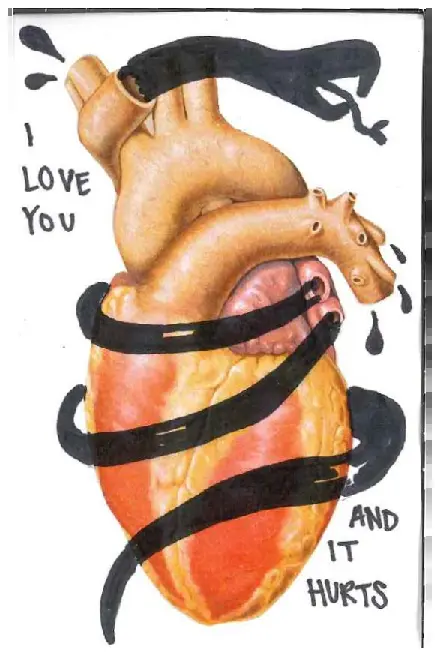 I
LOVE
YOU
AND
IT
HURTS